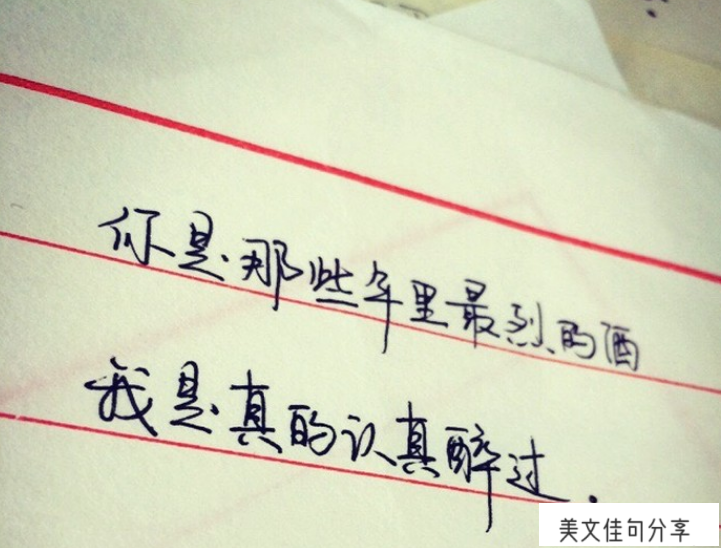 你是那些年里最烈的酒
我是真的认真醉过.
美文佳句分享